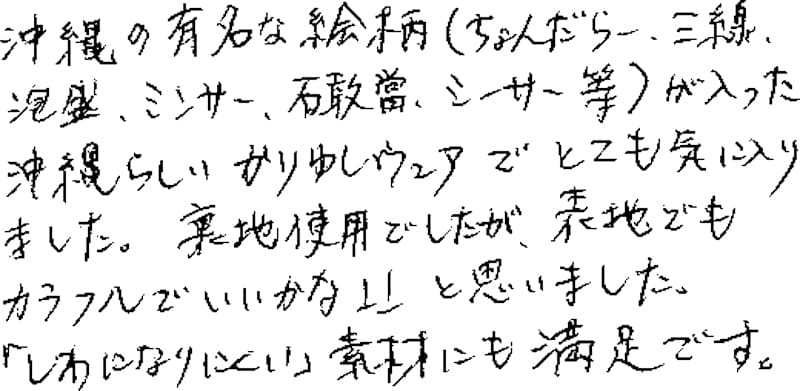 沖縄の有名な絵柄(ちょんだらー、三線、
泡盛、ミンサー、石敢當、シーサー等)が入った
沖縄らしいかりゆしウェアでとても気に入り
ました。裏地使用でしたが、表地でも
カラフルでいいかな!!と思いました。
「しわになりにくい」素材にも満足です。